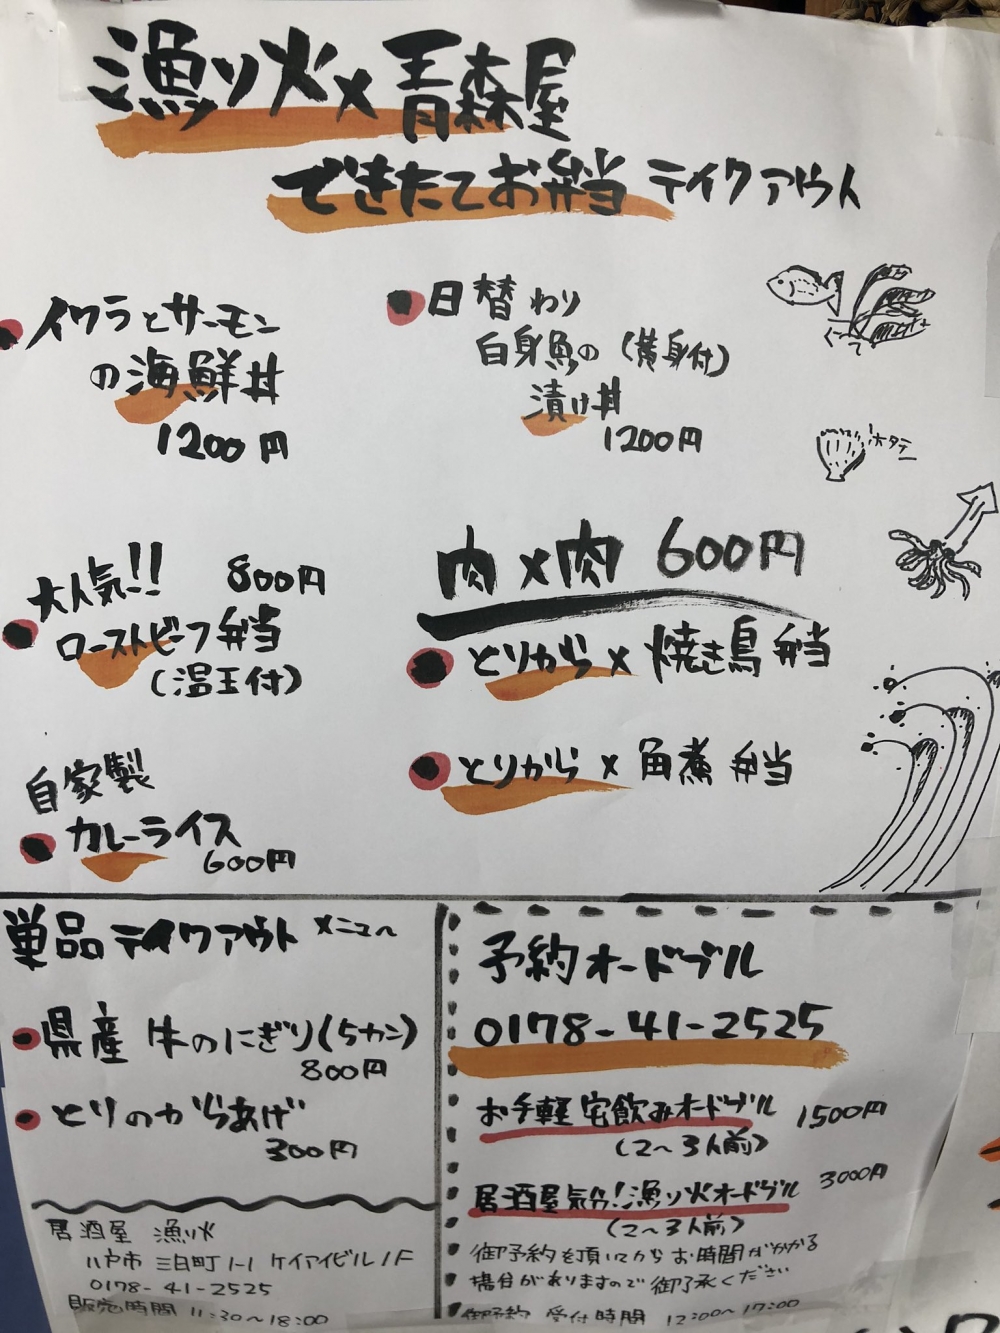 漁り火×青森屋
できたてお弁当 テイクアウト
イクラとサーモン
の海鮮丼
1200円
日替わり
白身魚の(黄身付)
漬け丼
1200円
ホタテ
大人気!! 800円
ローストビーフ弁当
(温玉付)
肉×肉 600円
とりから×焼き鳥弁当
とりから×角煮弁当
自家製
カレーライス
600円
単品テイクアウトメニュー
県産 牛のにぎり(5カン)
800円
とりのからあげ
300円
居酒屋 漁り火
八戸市 三日町1-1 ケイアイビル1F
0178-41-2525
販売時間 11:30~18:00
予約オードブル
0178-41-2525
お手軽宅飲みオードブル 1500円
(2~3人前)
居酒屋気分!漁り火オードブル 3000円
(2~3人前)
御予約を頂いてからお時間がかかる
場合がありますので御了承ください
御予約 受付時間 12:00~17:00